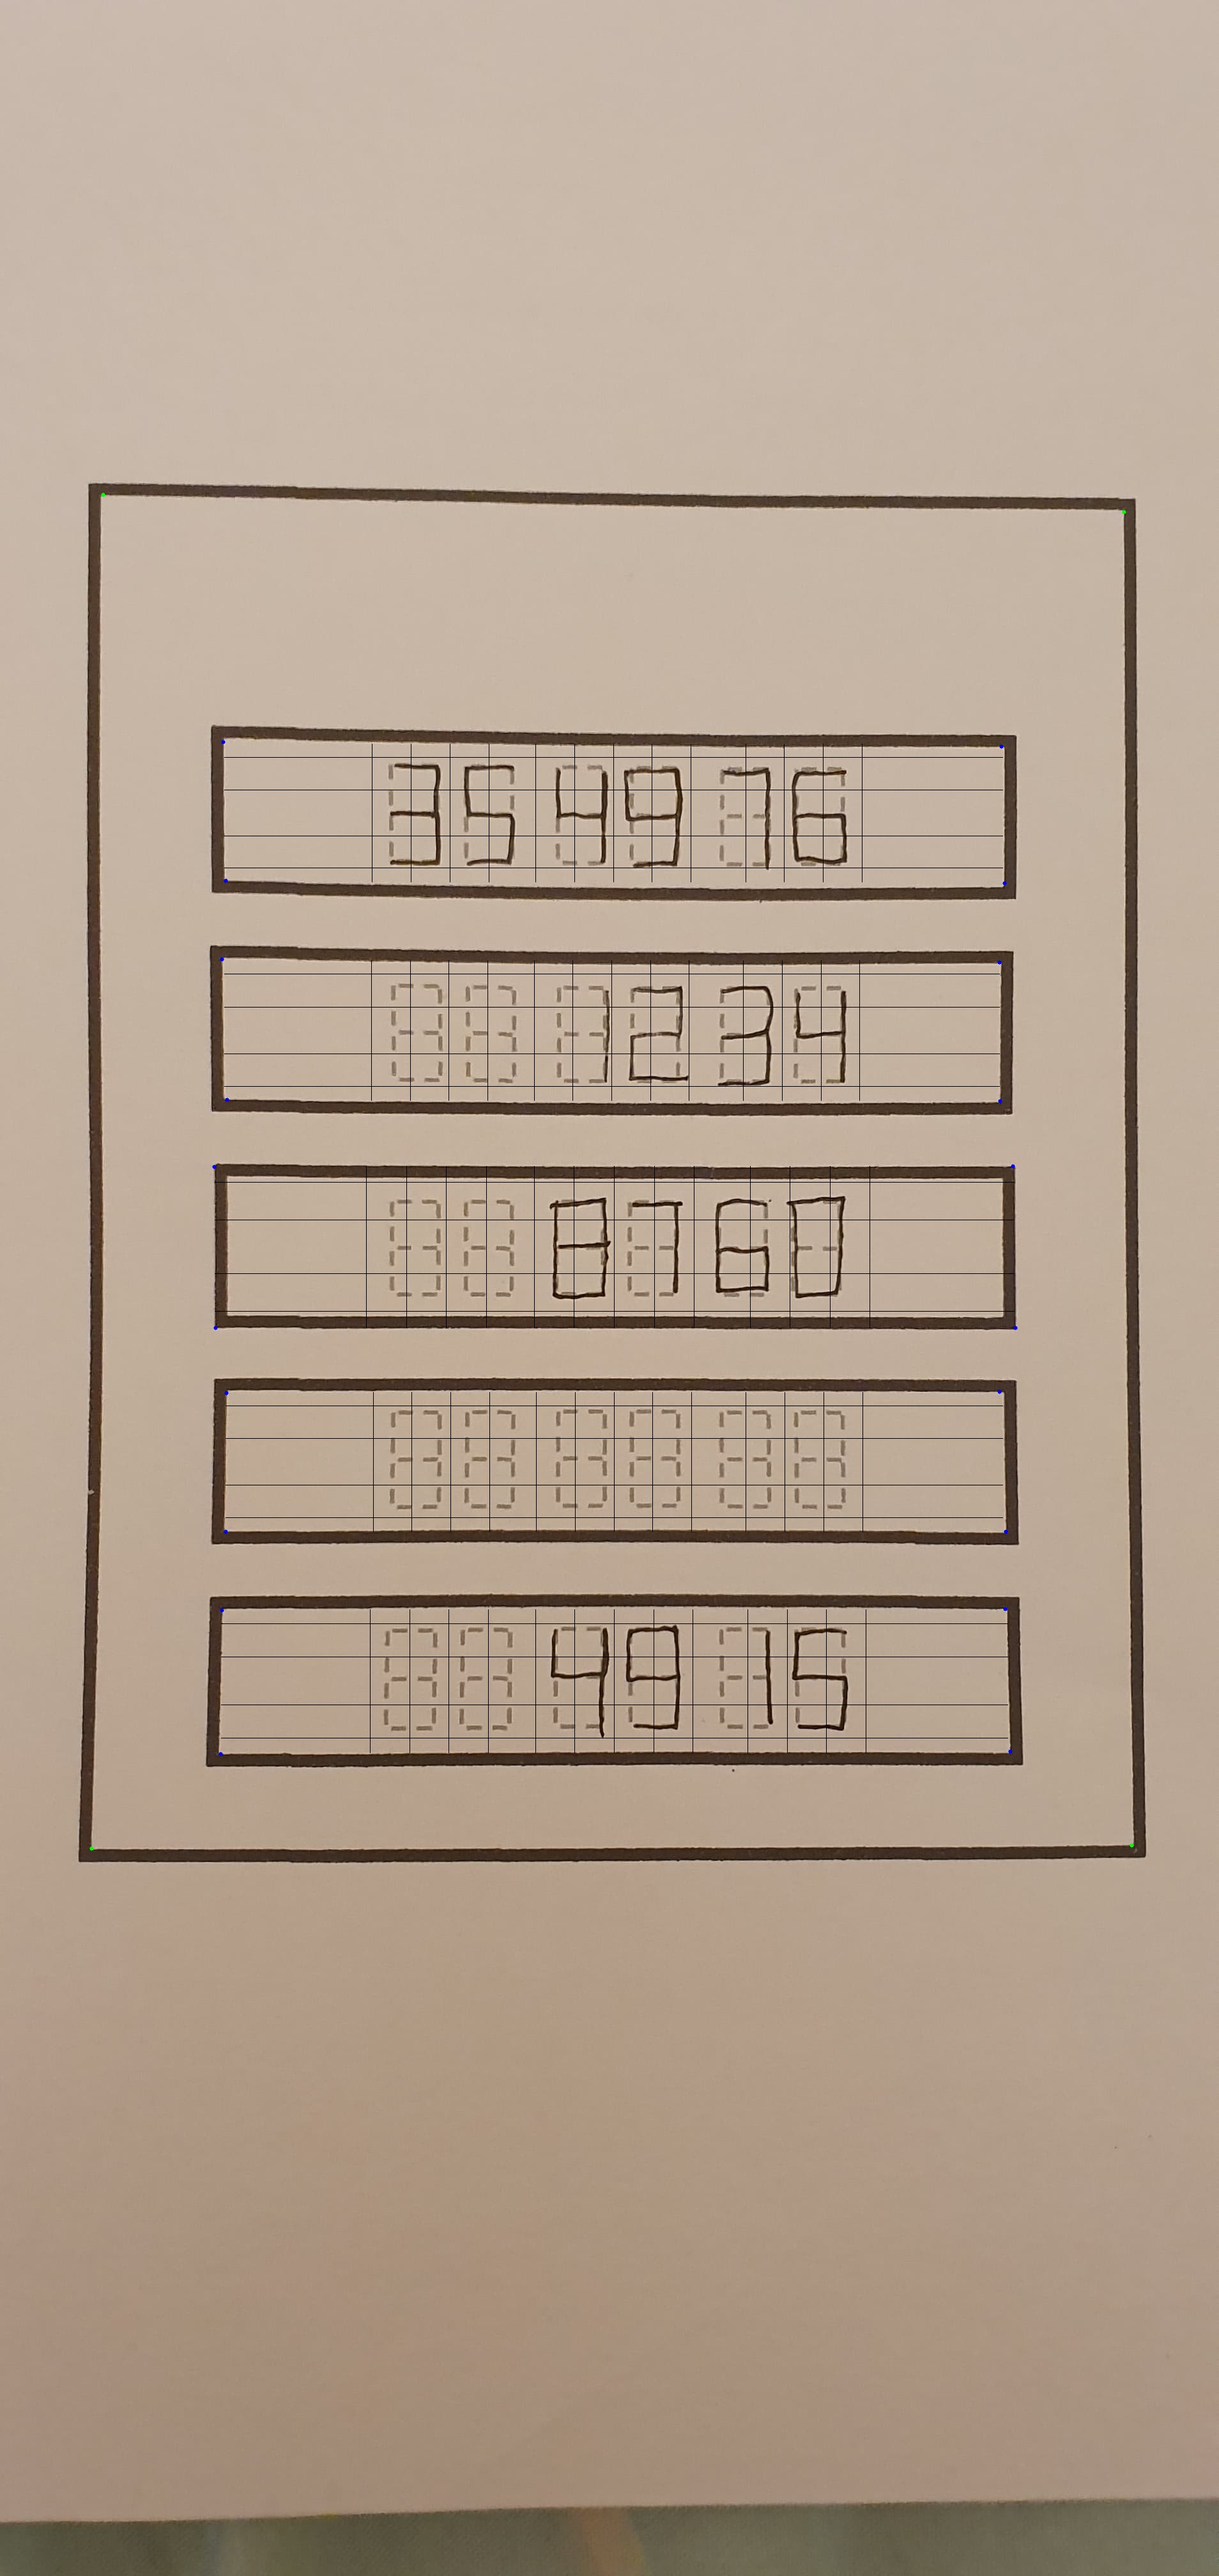 35 49 76
12 34
87 60
49 15